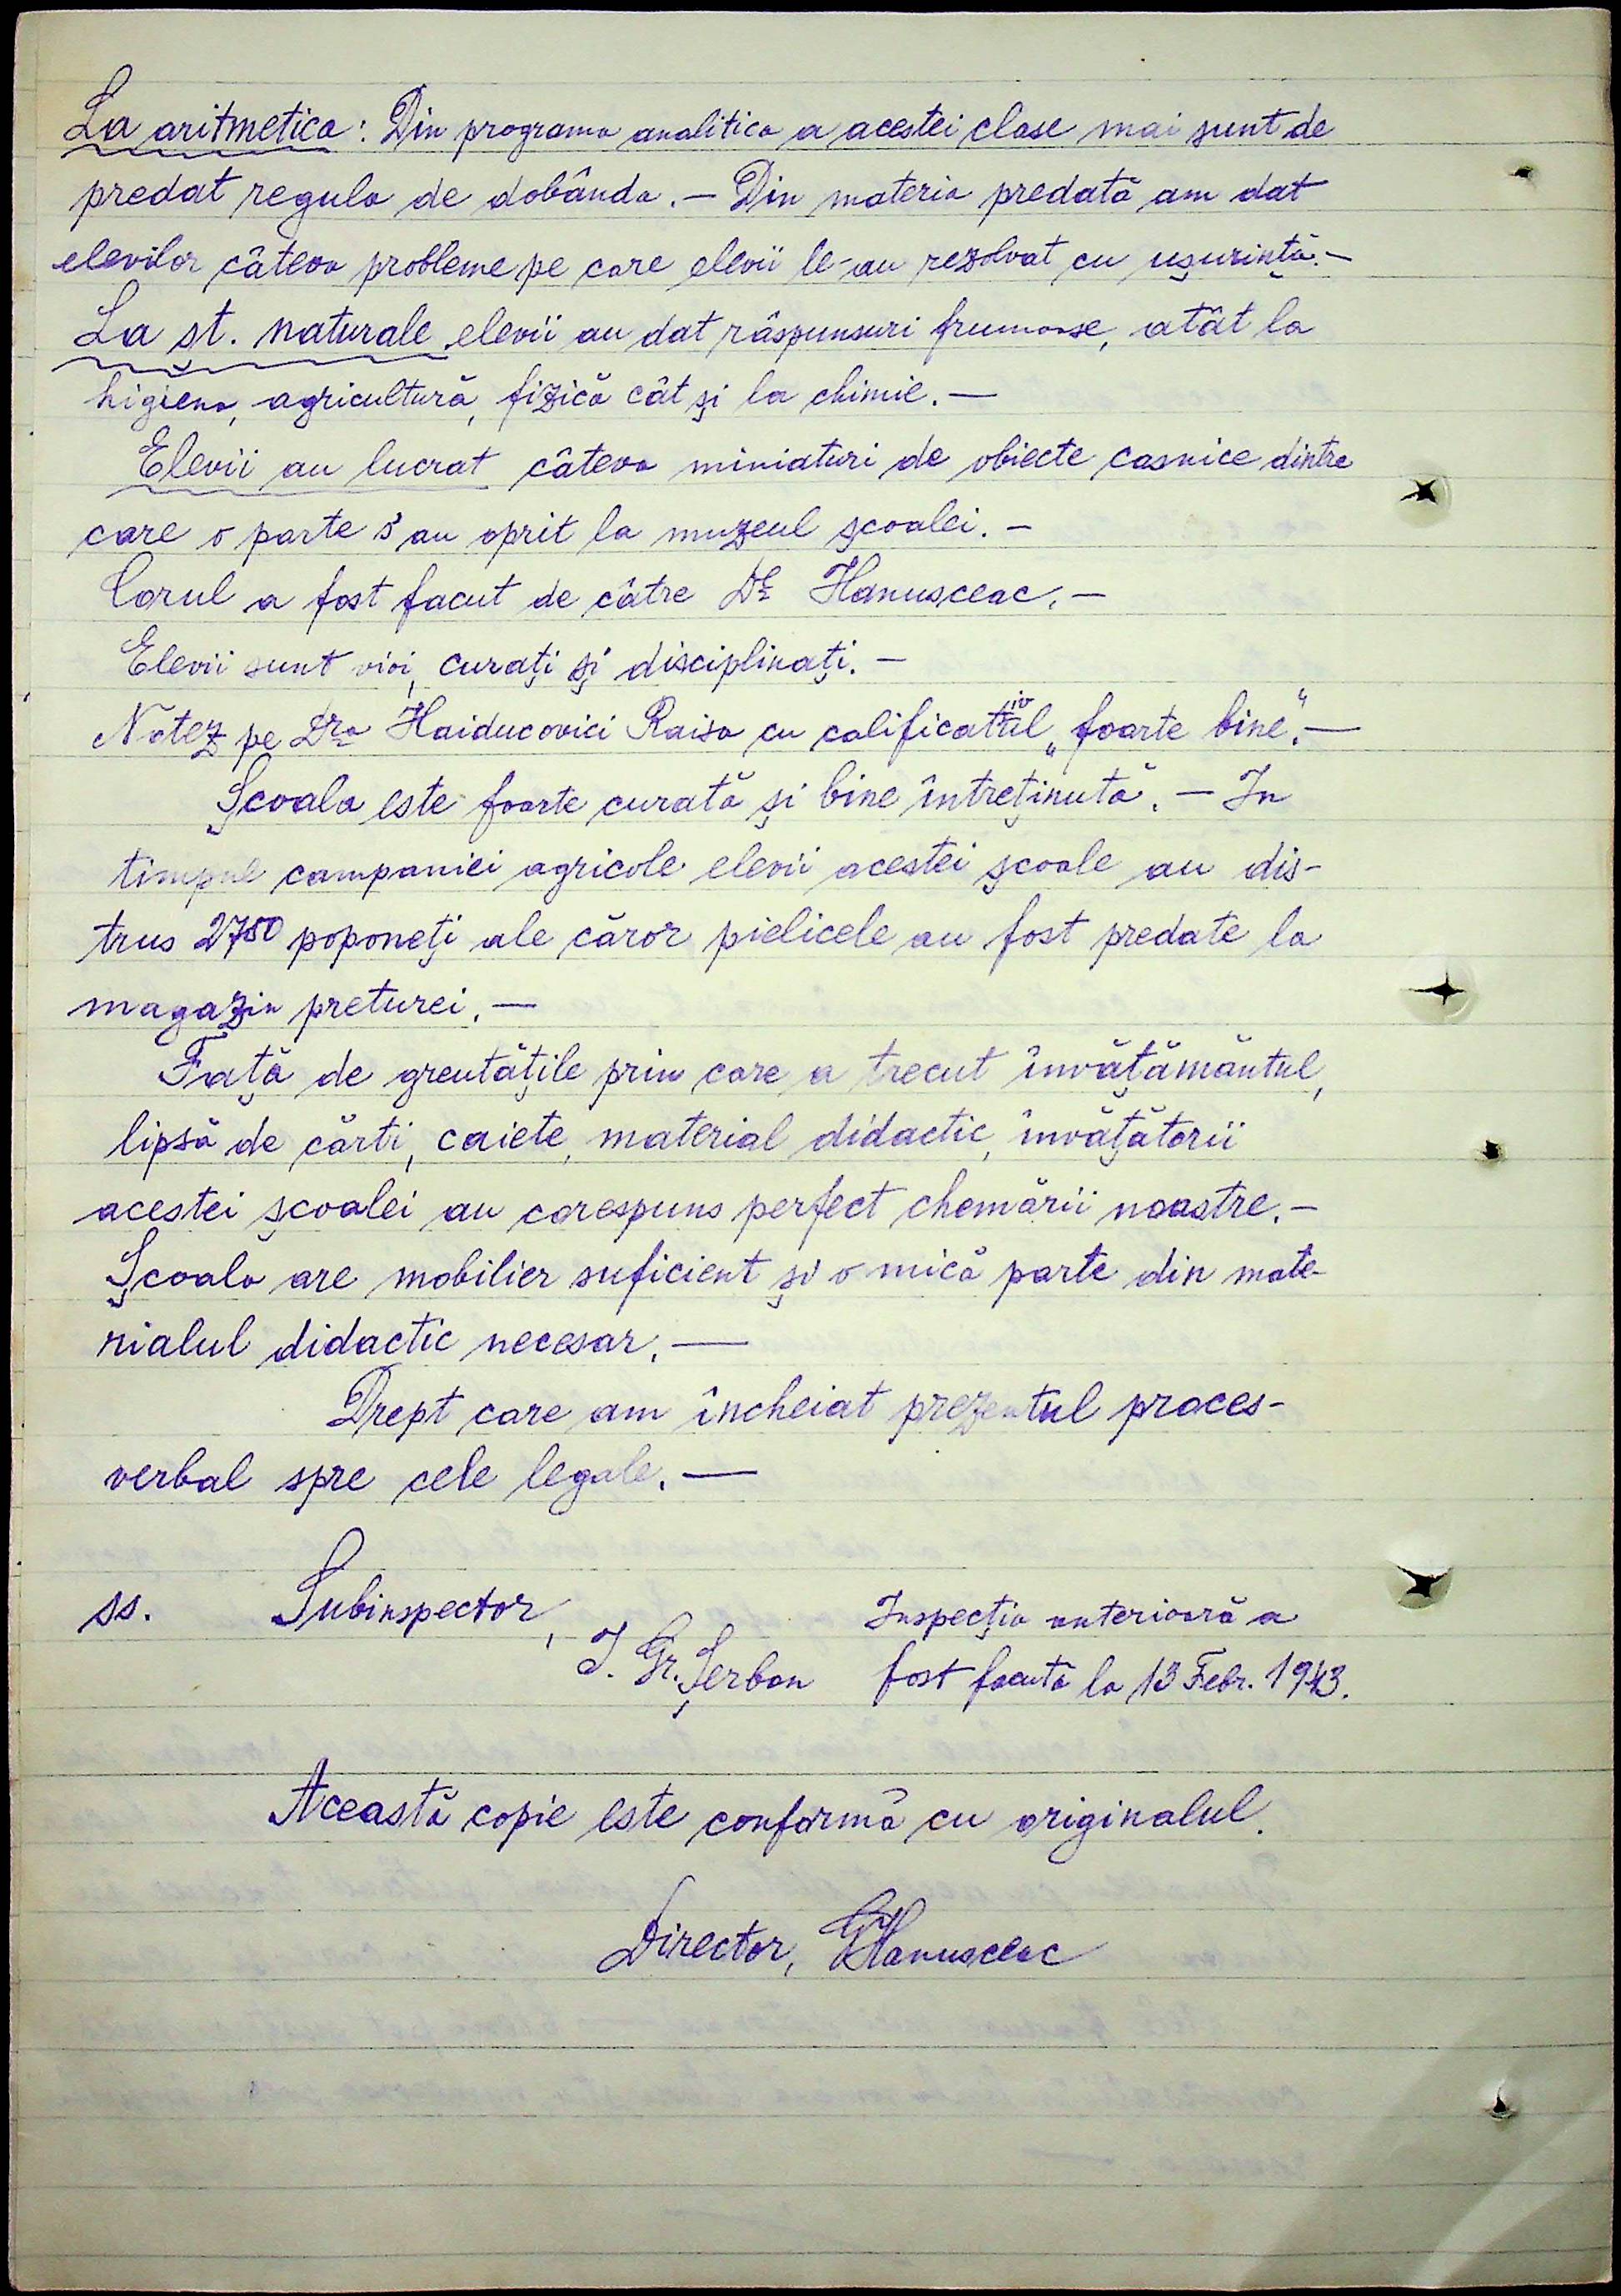 La aritmetica: Din programa analitica a acestei clase mai sunt de
predat regula de dobânda. — Din materia predată am dat
elevilor câteva probleme pe care elevii le-au rezolvat cu uşurinţă. —
La şt. naturale elevii au dat răspunsuri frumoase, atât la
higiena, agricultură, fizică cât şi la chimie. —
Elevii au lucrat câteva miniaturi de obiecte casnice dintre
care o parte s'au oprit la muzeul şcoalei. —
Corul a fost facut de către Dl Hanusceac. —
Elevii sunt vioi, curaţi şi disciplinaţi. —
Notez pe Dra Haiducovici Raisa cu calificativul „foarte bine". —
Şcoala este foarte curată şi bine întreţinută. — In
timpul campaniei agricole elevii acestei şcoale au dis-
trus 2750 poponeţi ale căror pielicele au fost predate la
magazin preturei. —
Faţă de greutăţile prin care a trecut învăţământul,
lipsă de cărti, caiete, material didactic, învăţătorii
acestei şcoalei au corespuns perfect chemării noastre. —
Şcoala are mobilier suficient şi o mică parte din mate-
rialul didactic necesar. —
Drept care am încheiat prezentul proces-
verbal spre cele legale. —
ss. Subinspector,
I. Gr. Şerban
Inspecţia anterioară a
fost facută la 13 Febr. 1943.
Această copie este conformă cu originalul.
Director, GHanusceac